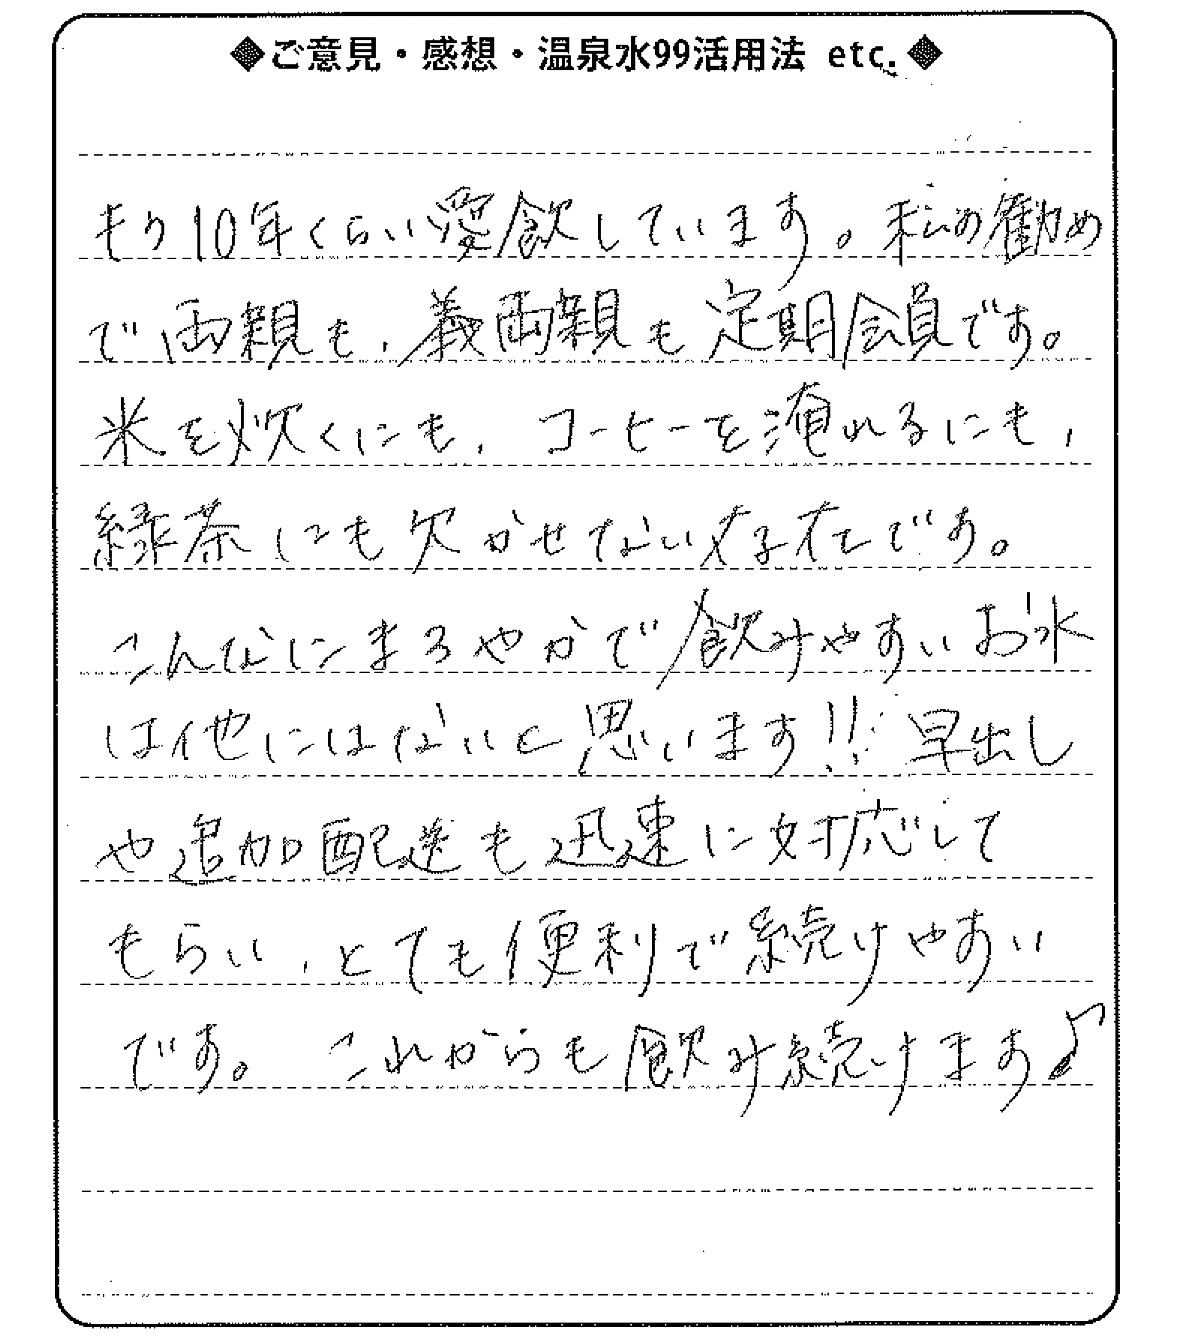 ◆ご意見・感想・温泉水99活用法 etc.◆
もう10年くらい愛飲しています。私の勧め
で両親も、義両親も定期会員です。
米を炊くにも、コーヒーを淹れるにも、
緑茶にも欠かせない存在です。
こんなにまろやかで飲みやすいお水
は他にはないと思います!! 早出し
や追加配送も迅速に対応して
もらい、とても便利で続けやすい
です。 これからも飲み続けます♪